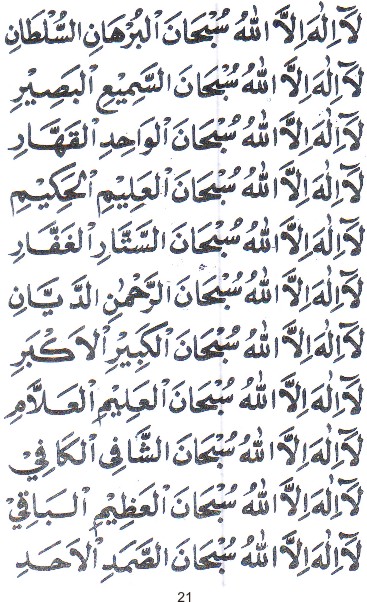 لَآ اِلٰهَ اِلَّا اللهُ سُبْحَانَ الْبُرْهَانِ السُّلْطَانِ
لَآ اِلٰهَ اِلَّا اللهُ سُبْحَانَ السَّمِيعِ الْبَصِيْرِ
لَآ اِلٰهَ اِلَّا اللهُ سُبْحَانَ الْوَاحِدِ الْقَهَّارِ
لَآ اِلٰهَ اِلَّا اللهُ سُبْحَانَ الْعَلِيْمِ الْحَكِيْمِ
لَآ اِلٰهَ اِلَّا اللهُ سُبْحَانَ السَّتَّارِ الْغَفَّارِ
لَآ اِلٰهَ اِلَّا اللهُ سُبْحَانَ الرَّحْمٰنِ الدَّيَّانِ
لَآ اِلٰهَ اِلَّا اللهُ سُبْحَانَ الْكَبِيْرِ الْاَكْبَرِ
لَآ اِلٰهَ اِلَّا اللهُ سُبْحَانَ الْعَلِيْمِ الْعَلَّامِ
لَآ اِلٰهَ اِلَّا اللهُ سُبْحَانَ الشَّافِى الْكَافِيْ
لَآ اِلٰهَ اِلَّا اللهُ سُبْحَانَ الْعَظِيْمِ الْبَاقِيْ
لَآ اِلٰهَ اِلَّا اللهُ سُبْحَانَ الصَّمَدِ الْاَحَدِ
21